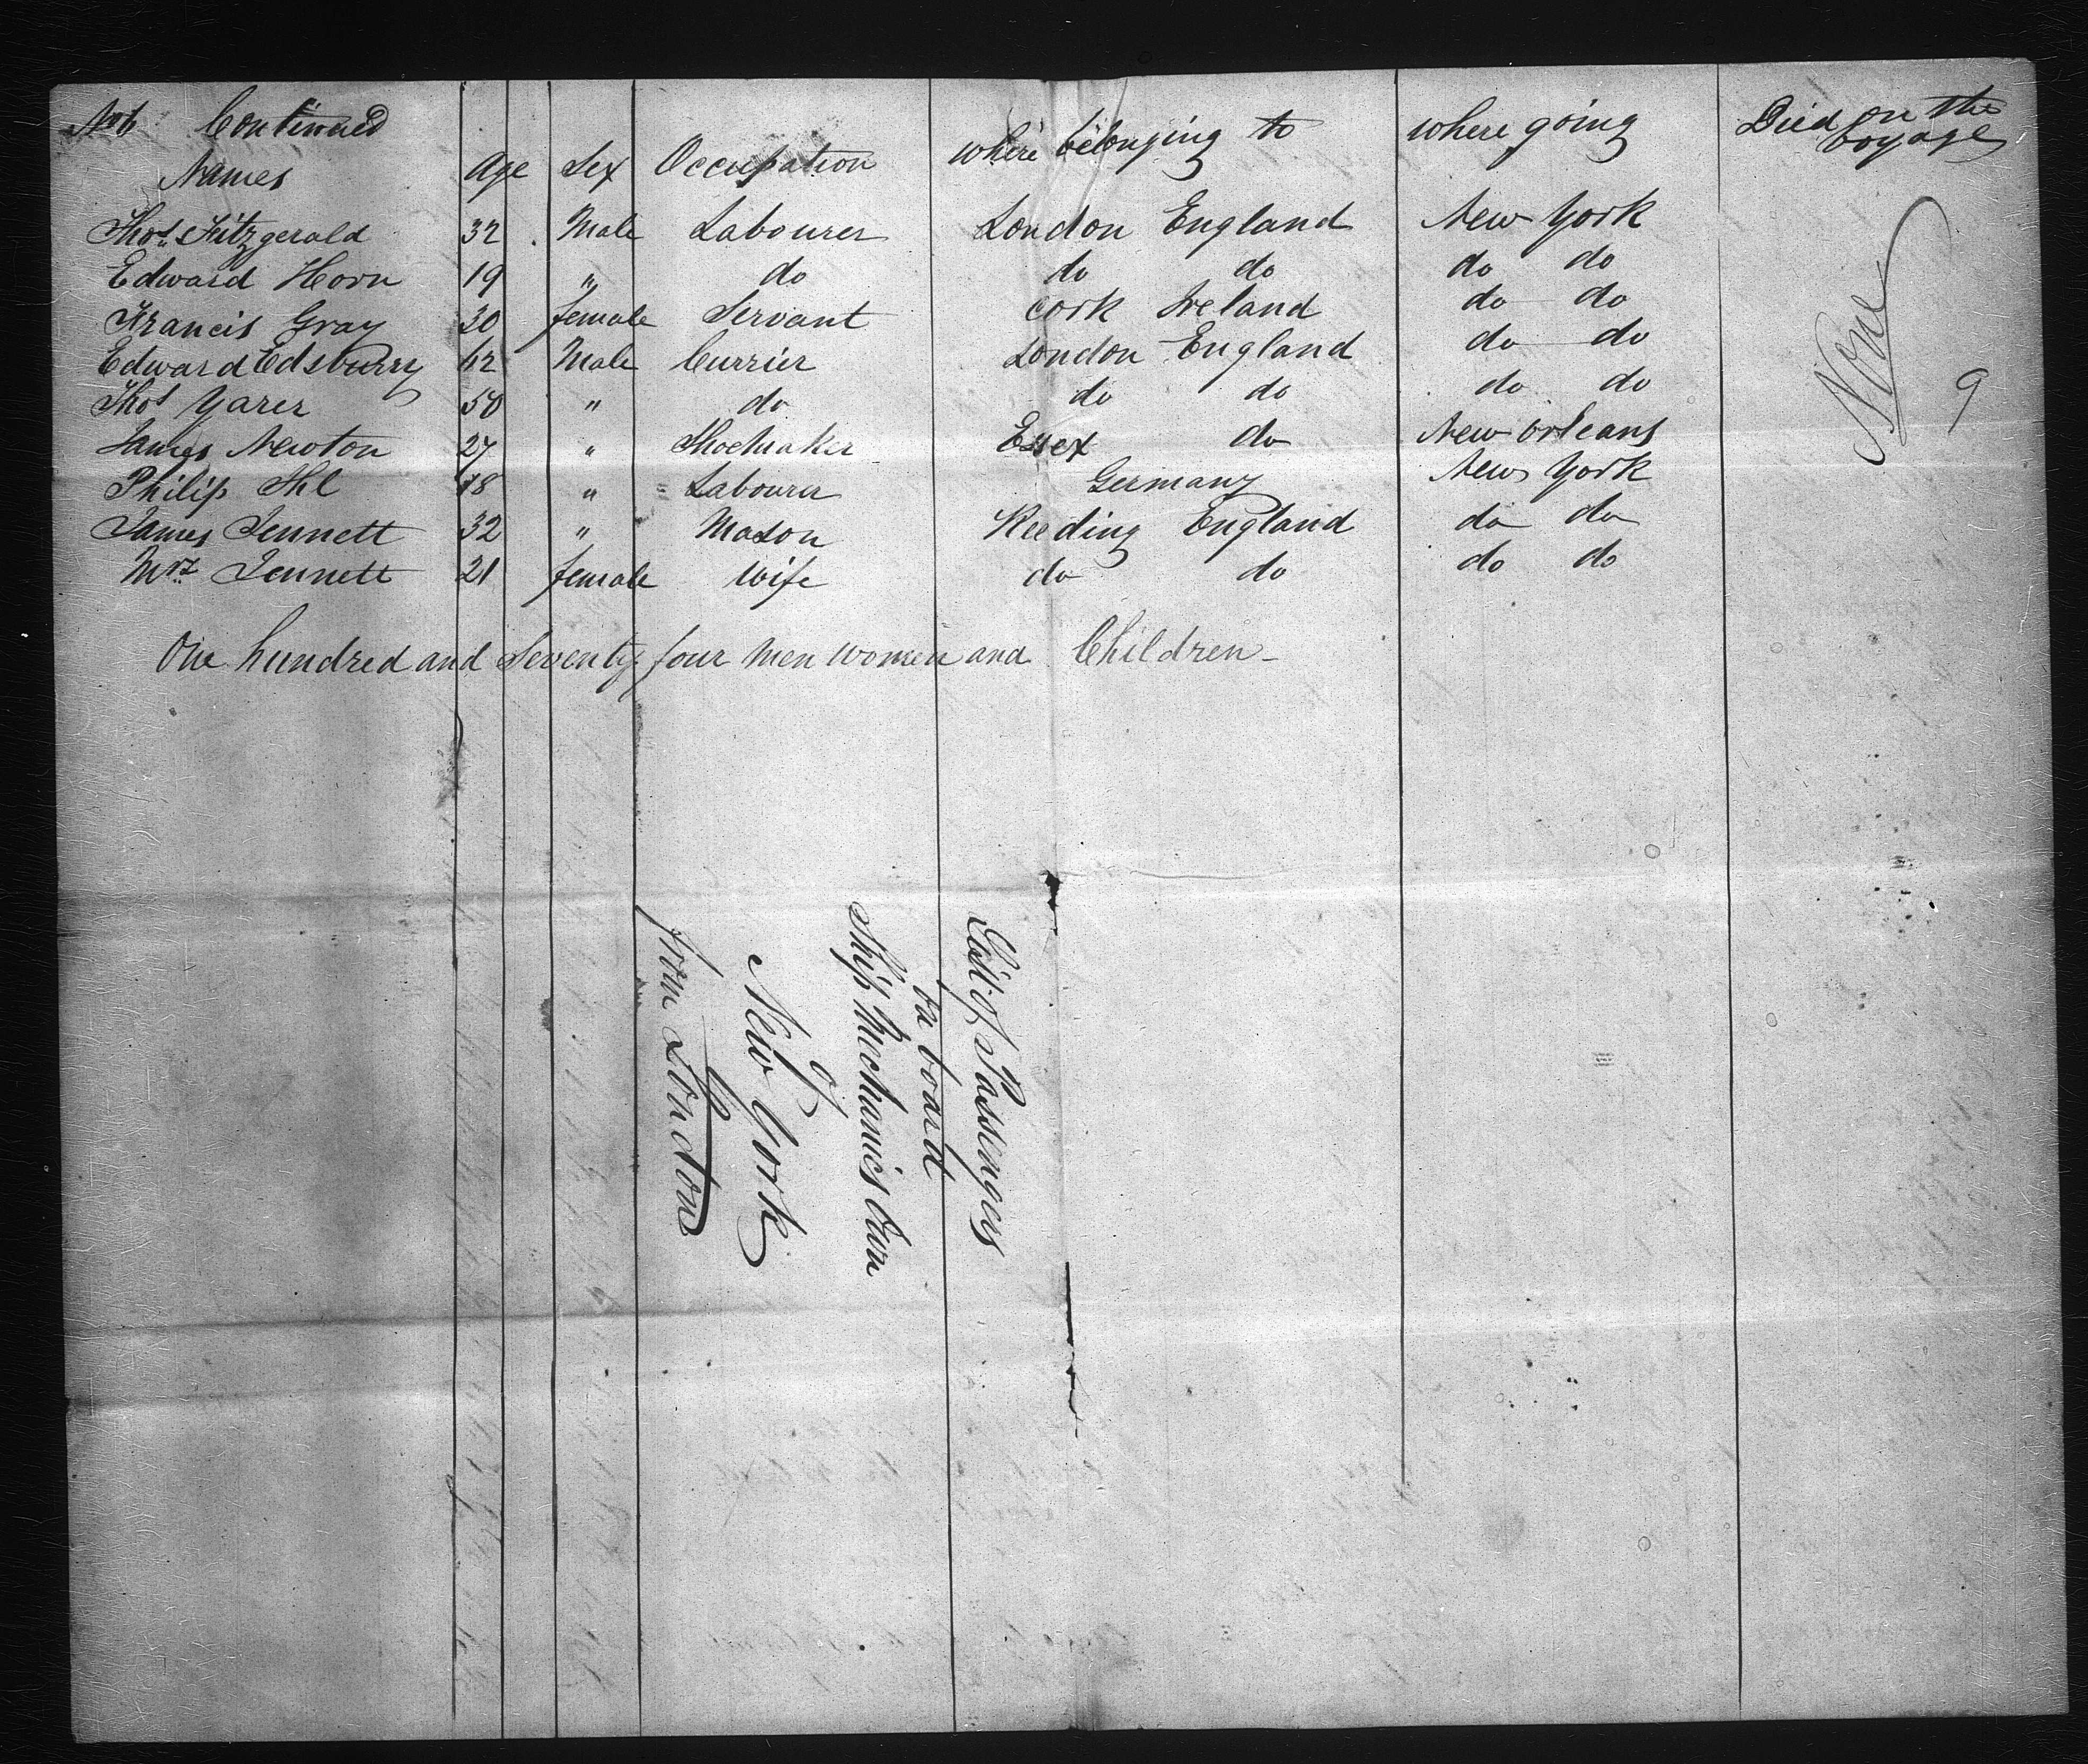 No 6 Continued
Names Age Sex Occupation where belonging to where going Died on the voyage
Thos Fitzgerald 32 Male Labourer London England New York
Edward Horn 19 " do do do do do
Francis Gray 30 female Servant Cork Ireland do do
Edward Edsburry 42 Male Currier London England do do
Thos Yarer 50 " do do do do do
James Newton 27 " Shoemaker Essex do New Orleans
Philip Ihl 18 " Labourer Germany New York
James Jennett 32 " Mason Reeding England do do
Mrs Jennett 21 female Wife do do do do
None
9
One hundred and Seventy four men women and Children
List of Passenges
on board
Ship Mechanics Own
of
New York
from London